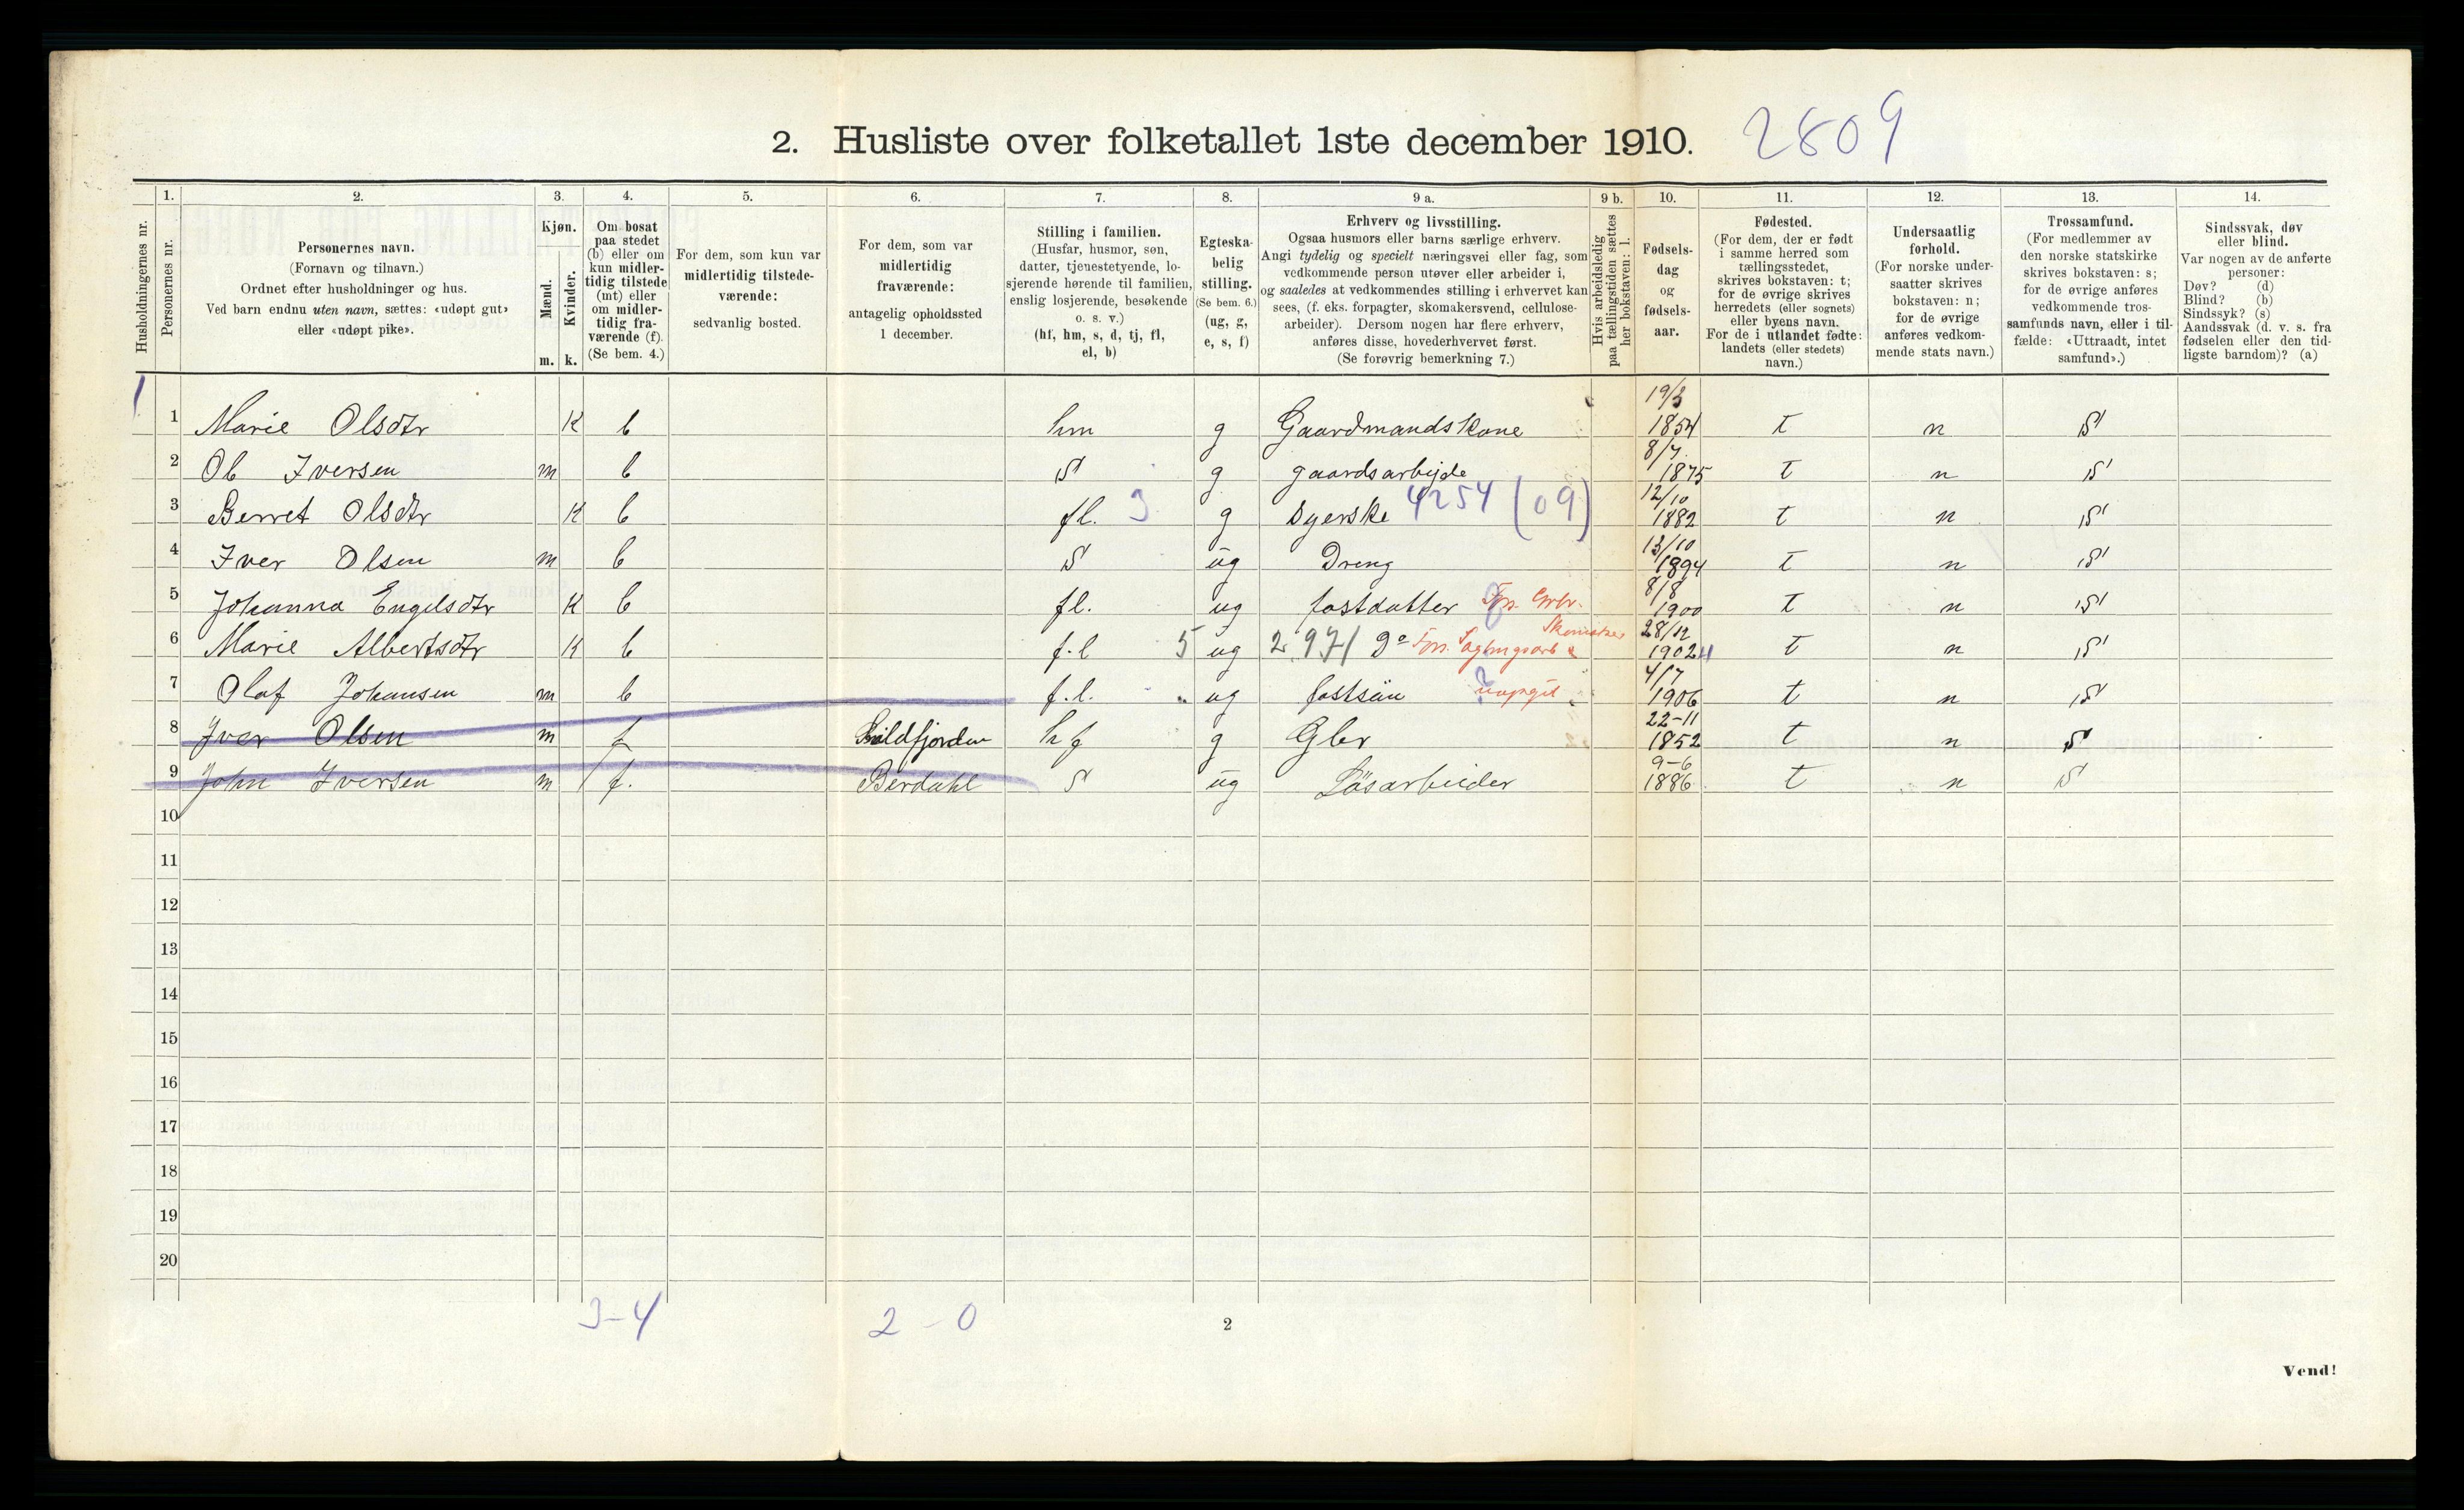 2. Husliste over folketallet 1ste december 1910. 2809
Husholdningernes nr.
1. Personernes nr.
2. Personernes navn.
(Fornavn og tilnavn.)
Ordnet efter husholdninger og hus.
Ved barn endnu uten navn, sættes: «udøpt gut»
eller «udøpt pike».
3. Kjøn.
Mænd. m.
Kvinder. k.
4. Om bosat
paa stedet
(b) eller om
kun midler-
tidig tilstede
(mt) eller
om midler-
tidig fra-
værende (f).
(Se bem. 4.)
5. For dem, som kun var
midlertidig tilstede-
værende:
sedvanlig bosted.
6. For dem, som var
midlertidig
fraværende:
antagelig opholdssted
1 december.
7. Stilling i familien.
(Husfar, husmor, søn,
datter, tjenestetyende, lo-
sjerende hørende til familien,
enslig losjerende, besøkende
o. s. v.)
(hf, hm, s, d, tj, fl,
el, b)
8. Egteska-
belig
stilling.
(Se bem. 6.)
(ug, g,
e, s, f)
9 a. Erhverv og livsstilling.
Ogsaa husmors eller barns særlige erhverv.
Angi tydelig og specielt næringsvei eller fag, som
vedkommende person utøver eller arbeider i,
og saaledes at vedkommendes stilling i erhvervet kan
sees, (f. eks. forpagter, skomakersvend, cellulose-
arbeider). Dersom nogen har flere erhverv,
anføres disse, hovederhvervet først.
(Se forøvrig bemerkning 7.)
9 b. Hvis arbeidsledig
paa tællingstiden sættes
her bokstaven: l.
10. Fødsels-
dag
og
fødsels-
aar.
11. Fødested.
(For dem, der er født
i samme herred som
tællingsstedet,
skrives bokstaven: t;
for de øvrige skrives
herredets (eller sognets)
eller byens navn.
For de i utlandet fødte:
landets (eller stedets)
navn.)
12. Undersaatlig
forhold.
(For norske under-
saatter skrives
bokstaven: n;
for de øvrige
anføres vedkom-
mende stats navn.)
13. Trossamfund.
(For medlemmer av
den norske statskirke
skrives bokstaven: s;
for de øvrige anføres
vedkommende tros-
samfunds navn, eller i til-
fælde: «Uttraadt, intet
samfund».)
14. Sindssvak, døv
eller blind.
Var nogen av de anførte
personer:
Døv? (d)
Blind? (b)
Sindssyk? (s)
Aandssvak (d. v. s. fra
fødselen eller den tid-
ligste barndom)? (a)
1 1 Marie Olsdtr K b hm g Gaardmandskone 19/3 1854 t n S
2 Ole Iversen m b S g gaardsarbejde 8/7 1875 t n S
3 Berret Olsdtr K b fl. 3 g Syerske 4254 (09) 12/10 1882 t n S
4 Iver Olsen m b S ug Dreng 13/10 1894 t n S
5 Johanna Engelsdtr K b fl. ug fostdatter 8/8 1900 t n S
6 Marie Albertsdtr K b f.l 5 ug Do 28/12 1902 t n S
7 Olaf Johansen m b f.l. ug fostsön 4/7 1906 t n S
8 Iver Olsen m f hf g Gbr 22-11 1852 t n S
9 John Iversen m f. Berdahl S ug Lösarbeider 9-6 1886 t n S
10
11
12
13
14
15
16
17
18
19
20
3-4 2-0
2
Vend!